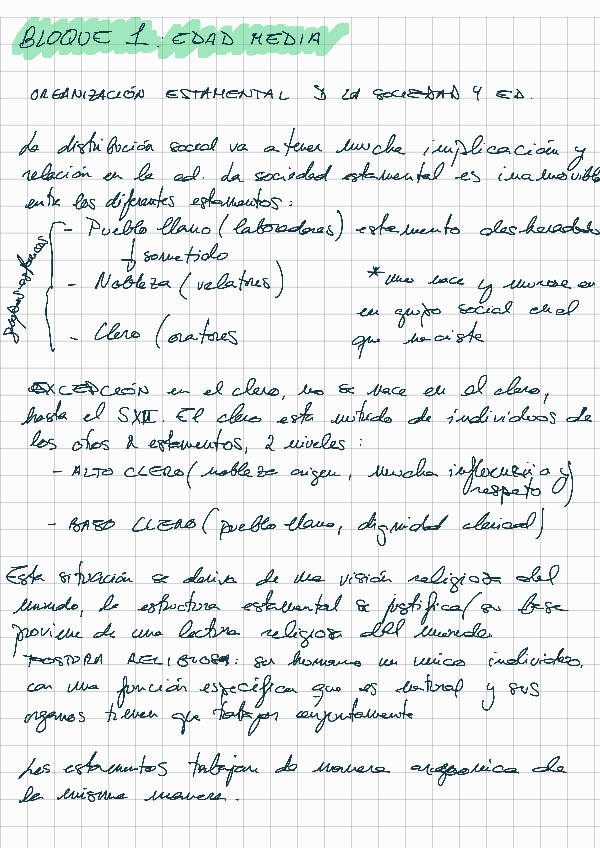 BLOQUE 1: EDAD MEDIA
ORGANIZACIÓN ESTAMENTAL D LA SOCIEDAD Y ED.
La distribución social va a tener mucha implicación y
relación en la ed. La sociedad estamental es inamovible
entre los diferentes estamentos:
- Pueblo llano (laboradores) estamento desheredado
sometido
- Nobleza (velatores)
- Clero (oratores
* uno nace y muere en
en grupo social en el
que naciste
EXCEPCIÓN en el clero, no se nace en el clero,
hasta el SXII. El clero esta nutrido de individuos de
los otros 2 estamentos, 2 niveles:
- ALTO CLERO (nobleza origen, mucha influencia y
respeto)
- BAJO CLERO (pueblo llano, dignidad clerical)
Esta situación se deriva de una visión religiosa del
mundo, la estructura estamental se justifica/su base
proviene de una lectura religiosa del mundo.
POSTURA RELIGIOSA: ser humano un unico individuo,
con una función específica que es natural y sus
organos tienen que trabajar conjuntamente
Los estamentos trabajan de manera de
la misma manera.